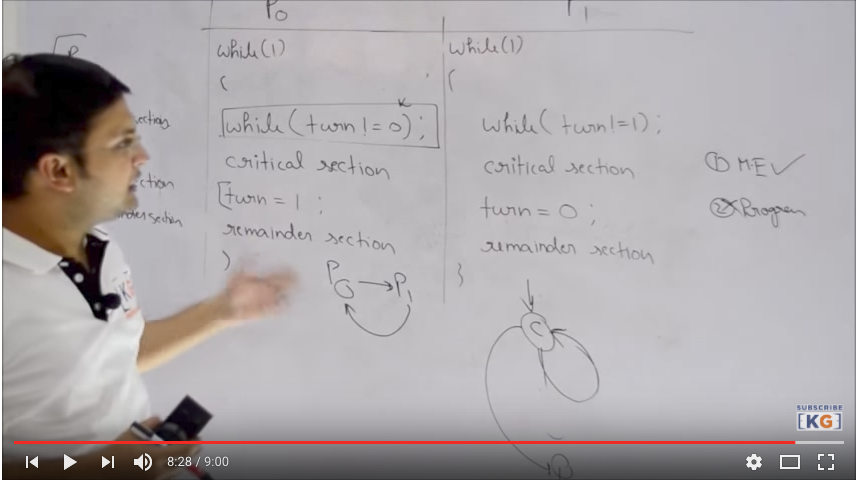 P0
P1
while(1)
{
while( turn!= 0);
critical section
turn = 1 ;
remainder section
}
P0 → P1
while(1)
{
while( turn!=1);
critical section
turn = 0 ;
remainder section
}
① M.E ✓
② × Progress
section
C
SUBSCRIBE
[KG]
[KG]
8:28 / 9:00